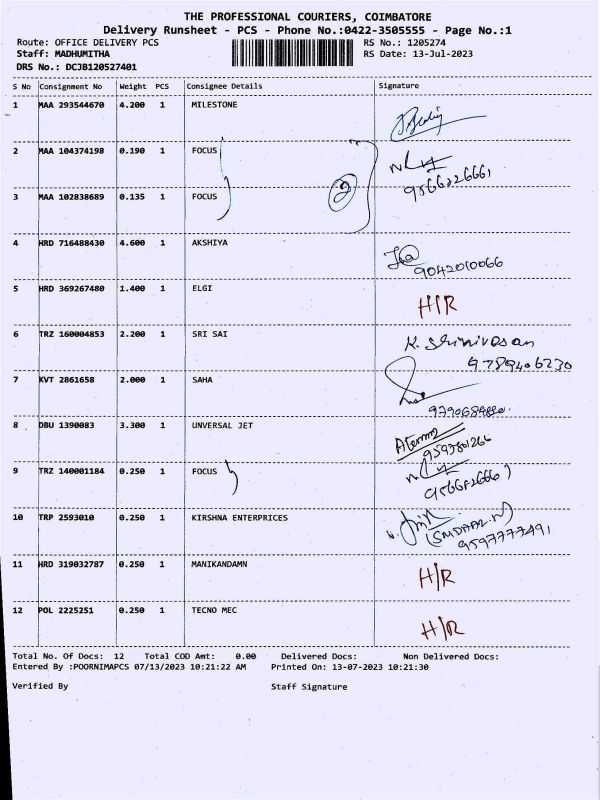 THE PROFESSIONAL COURIERS, COIMBATORE
Delivery Runsheet - PCS - Phone No.:0422-3505555 - Page No.:1
Route: OFFICE DELIVERY PCS RS No.: 1205274
Staff: MADHUMITHA RS Date: 13-Jul-2023
DRS No.: DCJB120527401
S No Consignment No Weight PCS Consignee Details Signature
1 MAA 293544670 4.200 1 MILESTONE
2 MAA 104374198 0.190 1 FOCUS
9566226661
3 MAA 102838689 0.135 1 FOCUS 2
4 HRD 716488430 4.600 1 AKSHIYA
9042010066
5 HRD 369267480 1.400 1 ELGI H/R
6 TRZ 160004853 2.200 1 SRI SAI K. Srinivasan
9789406230
7 KVT 2861658 2.000 1 SAHA
8 DBU 1390083 3.300 1 UNVERSAL JET
9 TRZ 140001184 0.250 1 FOCUS
10 TRP 2593010 0.250 1 KIRSHNA ENTERPRICES
9597777491
11 HRD 319032787 0.250 1 MANIKANDAMN H/R
12 POL 2225251 0.250 1 TECNO MEC H/R
Total No. Of Docs: 12 Total COD Amt: 0.00 Delivered Docs: Non Delivered Docs:
Entered By :POORNIMAPCS 07/13/2023 10:21:22 AM Printed On: 13-07-2023 10:21:30
Verified By Staff Signature